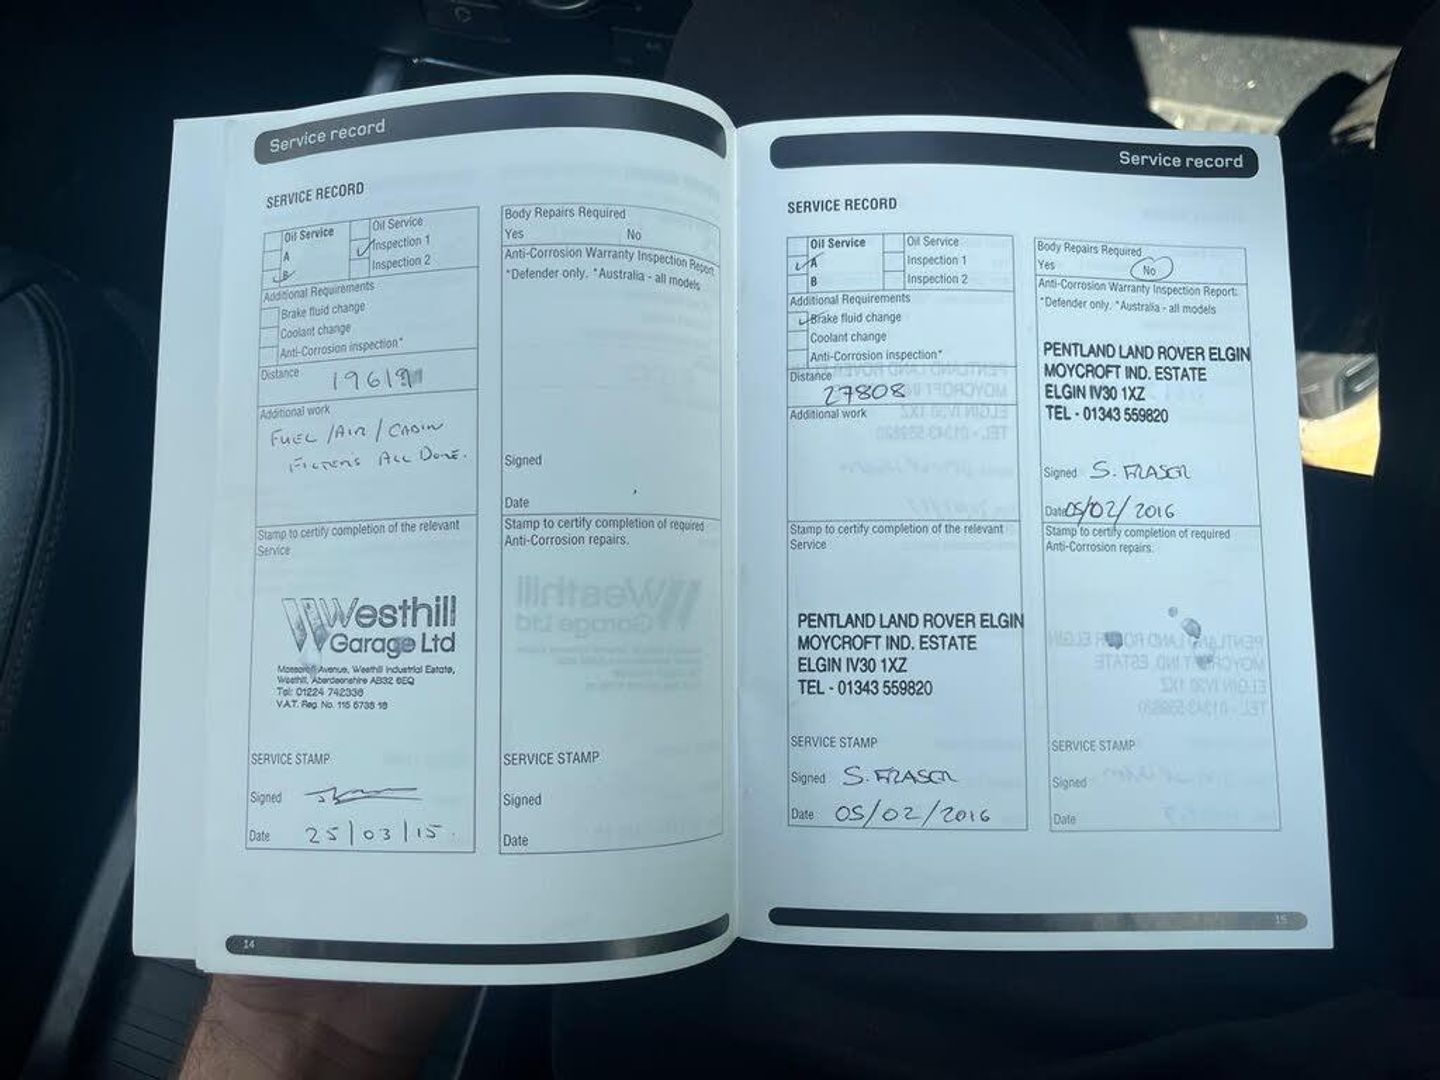 Service record
SERVICE RECORD
Oil Service
A
B
Oil Service
Inspection 1
Inspection 2
Additional Requirements
Brake fluid change
Coolant change
Anti-Corrosion inspection*
Distance
19619
Additional work
FUEL / AIR / CABIN
FILTERS ALL DONE.
Stamp to certify completion of the relevant
Service
Westhill
Garage Ltd
Avenue, Westhill Industrial Estate,
Westhill, Aberdeenshire AB32 6EQ
Tel: 01224 742338
V.A.T. Reg. No. 115 5738 18
SERVICE STAMP
Signed
Date 25/03/15.
Body Repairs Required
Yes No
Anti-Corrosion Warranty Inspection Report:
*Defender only. *Australia - all models
Signed
Date
Stamp to certify completion of required
Anti-Corrosion repairs.
SERVICE STAMP
Signed
Date
14
Service record
SERVICE RECORD
Oil Service
A
B
Oil Service
Inspection 1
Inspection 2
Additional Requirements
Brake fluid change
Coolant change
Anti-Corrosion inspection*
Distance
27808
Additional work
Stamp to certify completion of the relevant
Service
PENTLAND LAND ROVER ELGIN
MOYCROFT IND. ESTATE
ELGIN IV30 1XZ
TEL - 01343 559820
SERVICE STAMP
Signed S. FRASER
Date 05/02/2016
Body Repairs Required
Yes No
Anti-Corrosion Warranty Inspection Report:
*Defender only. *Australia - all models
PENTLAND LAND ROVER ELGIN
MOYCROFT IND. ESTATE
ELGIN IV30 1XZ
TEL - 01343 559820
Signed S. FRASER
Date 05/02/2016
Stamp to certify completion of required
Anti-Corrosion repairs.
SERVICE STAMP
Signed
Date
15